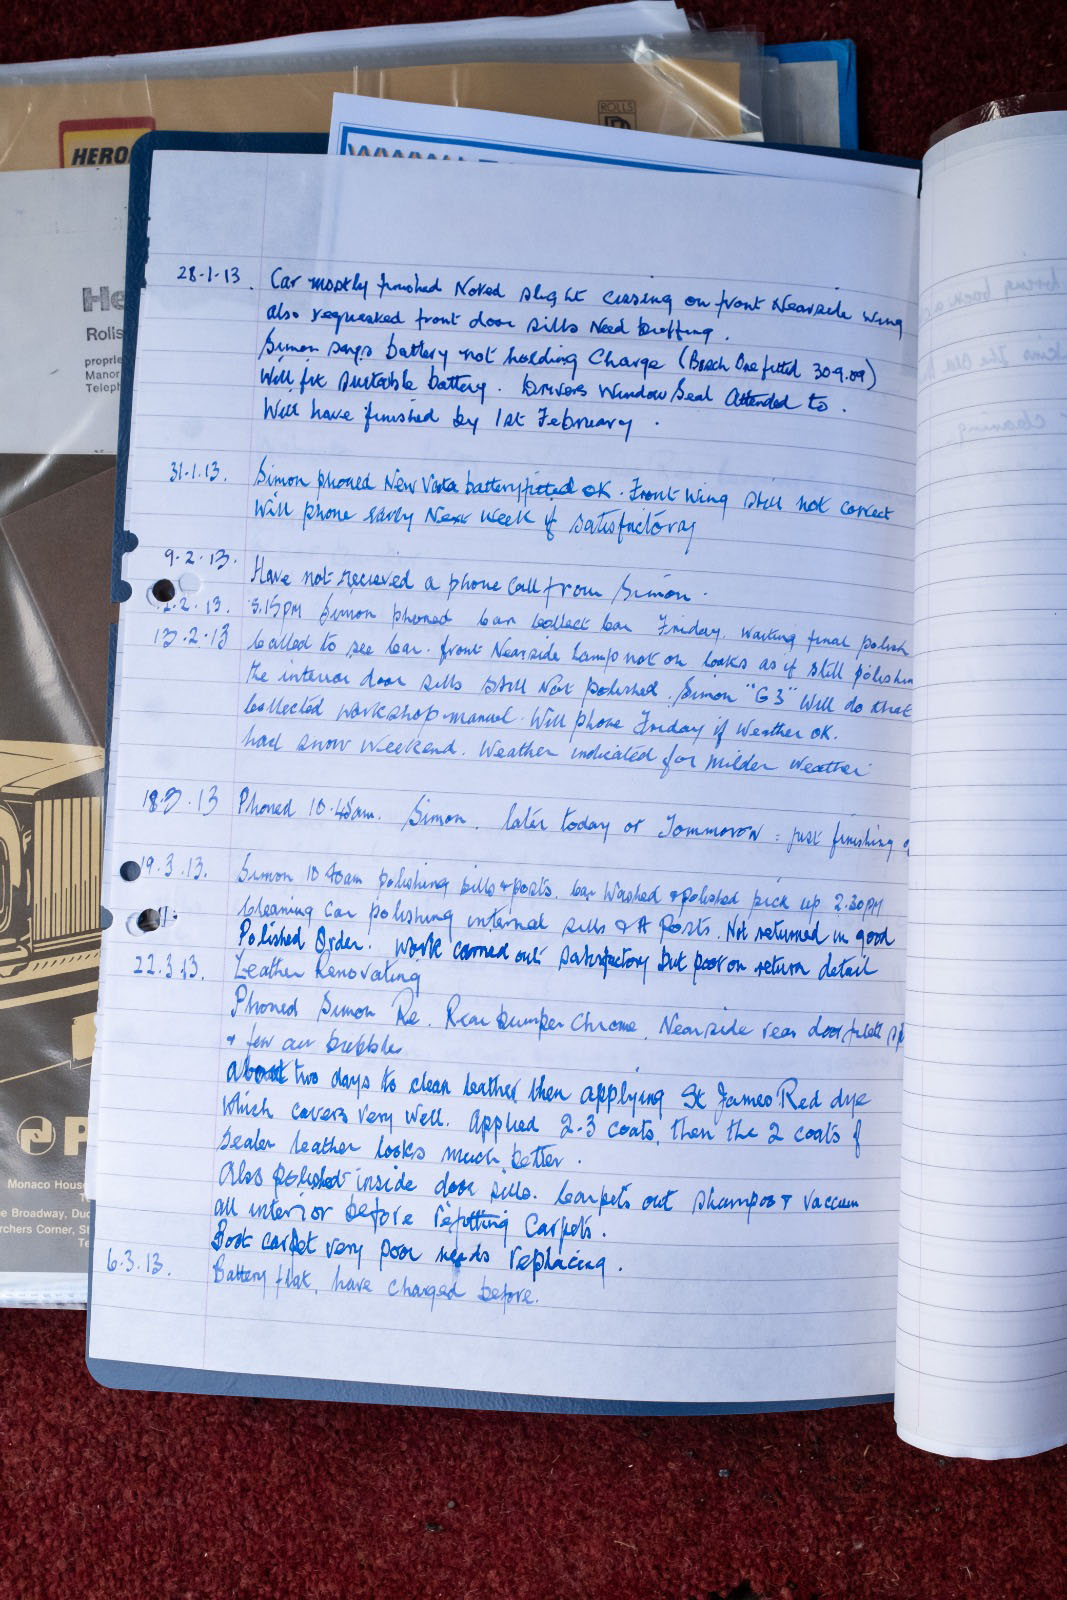 ROLLS
HERO
He
Rolls
proprie
Manor
Teleph
28-1-13. Car mostly finished Noted slight cissing on front Nearside wing
also requested front door sills Need buffing.
Simon says battery not holding Charge (Bosch One fitted 30.9.09)
Will fix suitable battery. Drivers Window Seal Attended to.
Will have finished by 1st February.
31.1.13. Simon phoned New Varta battery fitted OK. Front Wing still not correct
Will phone early Next Week if satisfactory
9.2.13. Have not recieved a phone call from Simon.
.2.13. 3.15pm Simon phoned Can Collect Car Friday. Waiting final polish
13.2.13 Called to see Car. front Nearside Lamp not on looks as if still polishin
the interior door sills still Not polished. Simon "G3" Will do that
Collected workshop manual. Will phone Friday if Weather OK.
had snow Weekend. Weather indicated for milder weather
18.3.13 Phoned 10.45am. Simon. later today or Tommorow = just finishing
19.3.13. Simon 10 40am polishing sills & posts. Car Washed & polished pick up 2.30pm
Cleaning Car polishing internal sills & A Posts. Not returned in good
Polished Order. Work carried out satisfactory but poor on return detail
22.3.13. Leather Renovating
Phoned Simon Re. Rear bumper Chrome. Nearside rear door
& few air bubbles
about two days to clean leather then applying St James Red dye
which covers very well. Applied 2-3 coats, then the 2 coats of
Sealer leather looks much better.
Also polished inside door sills. Carpets out shampoo & vaccum
all interior before refitting Carpets.
Boot carpet very poor needs replacing.
6.3.13. Battery flat, have charged before.
P
Monaco House
e Broadway, Duc
rchers Corner, St
Te